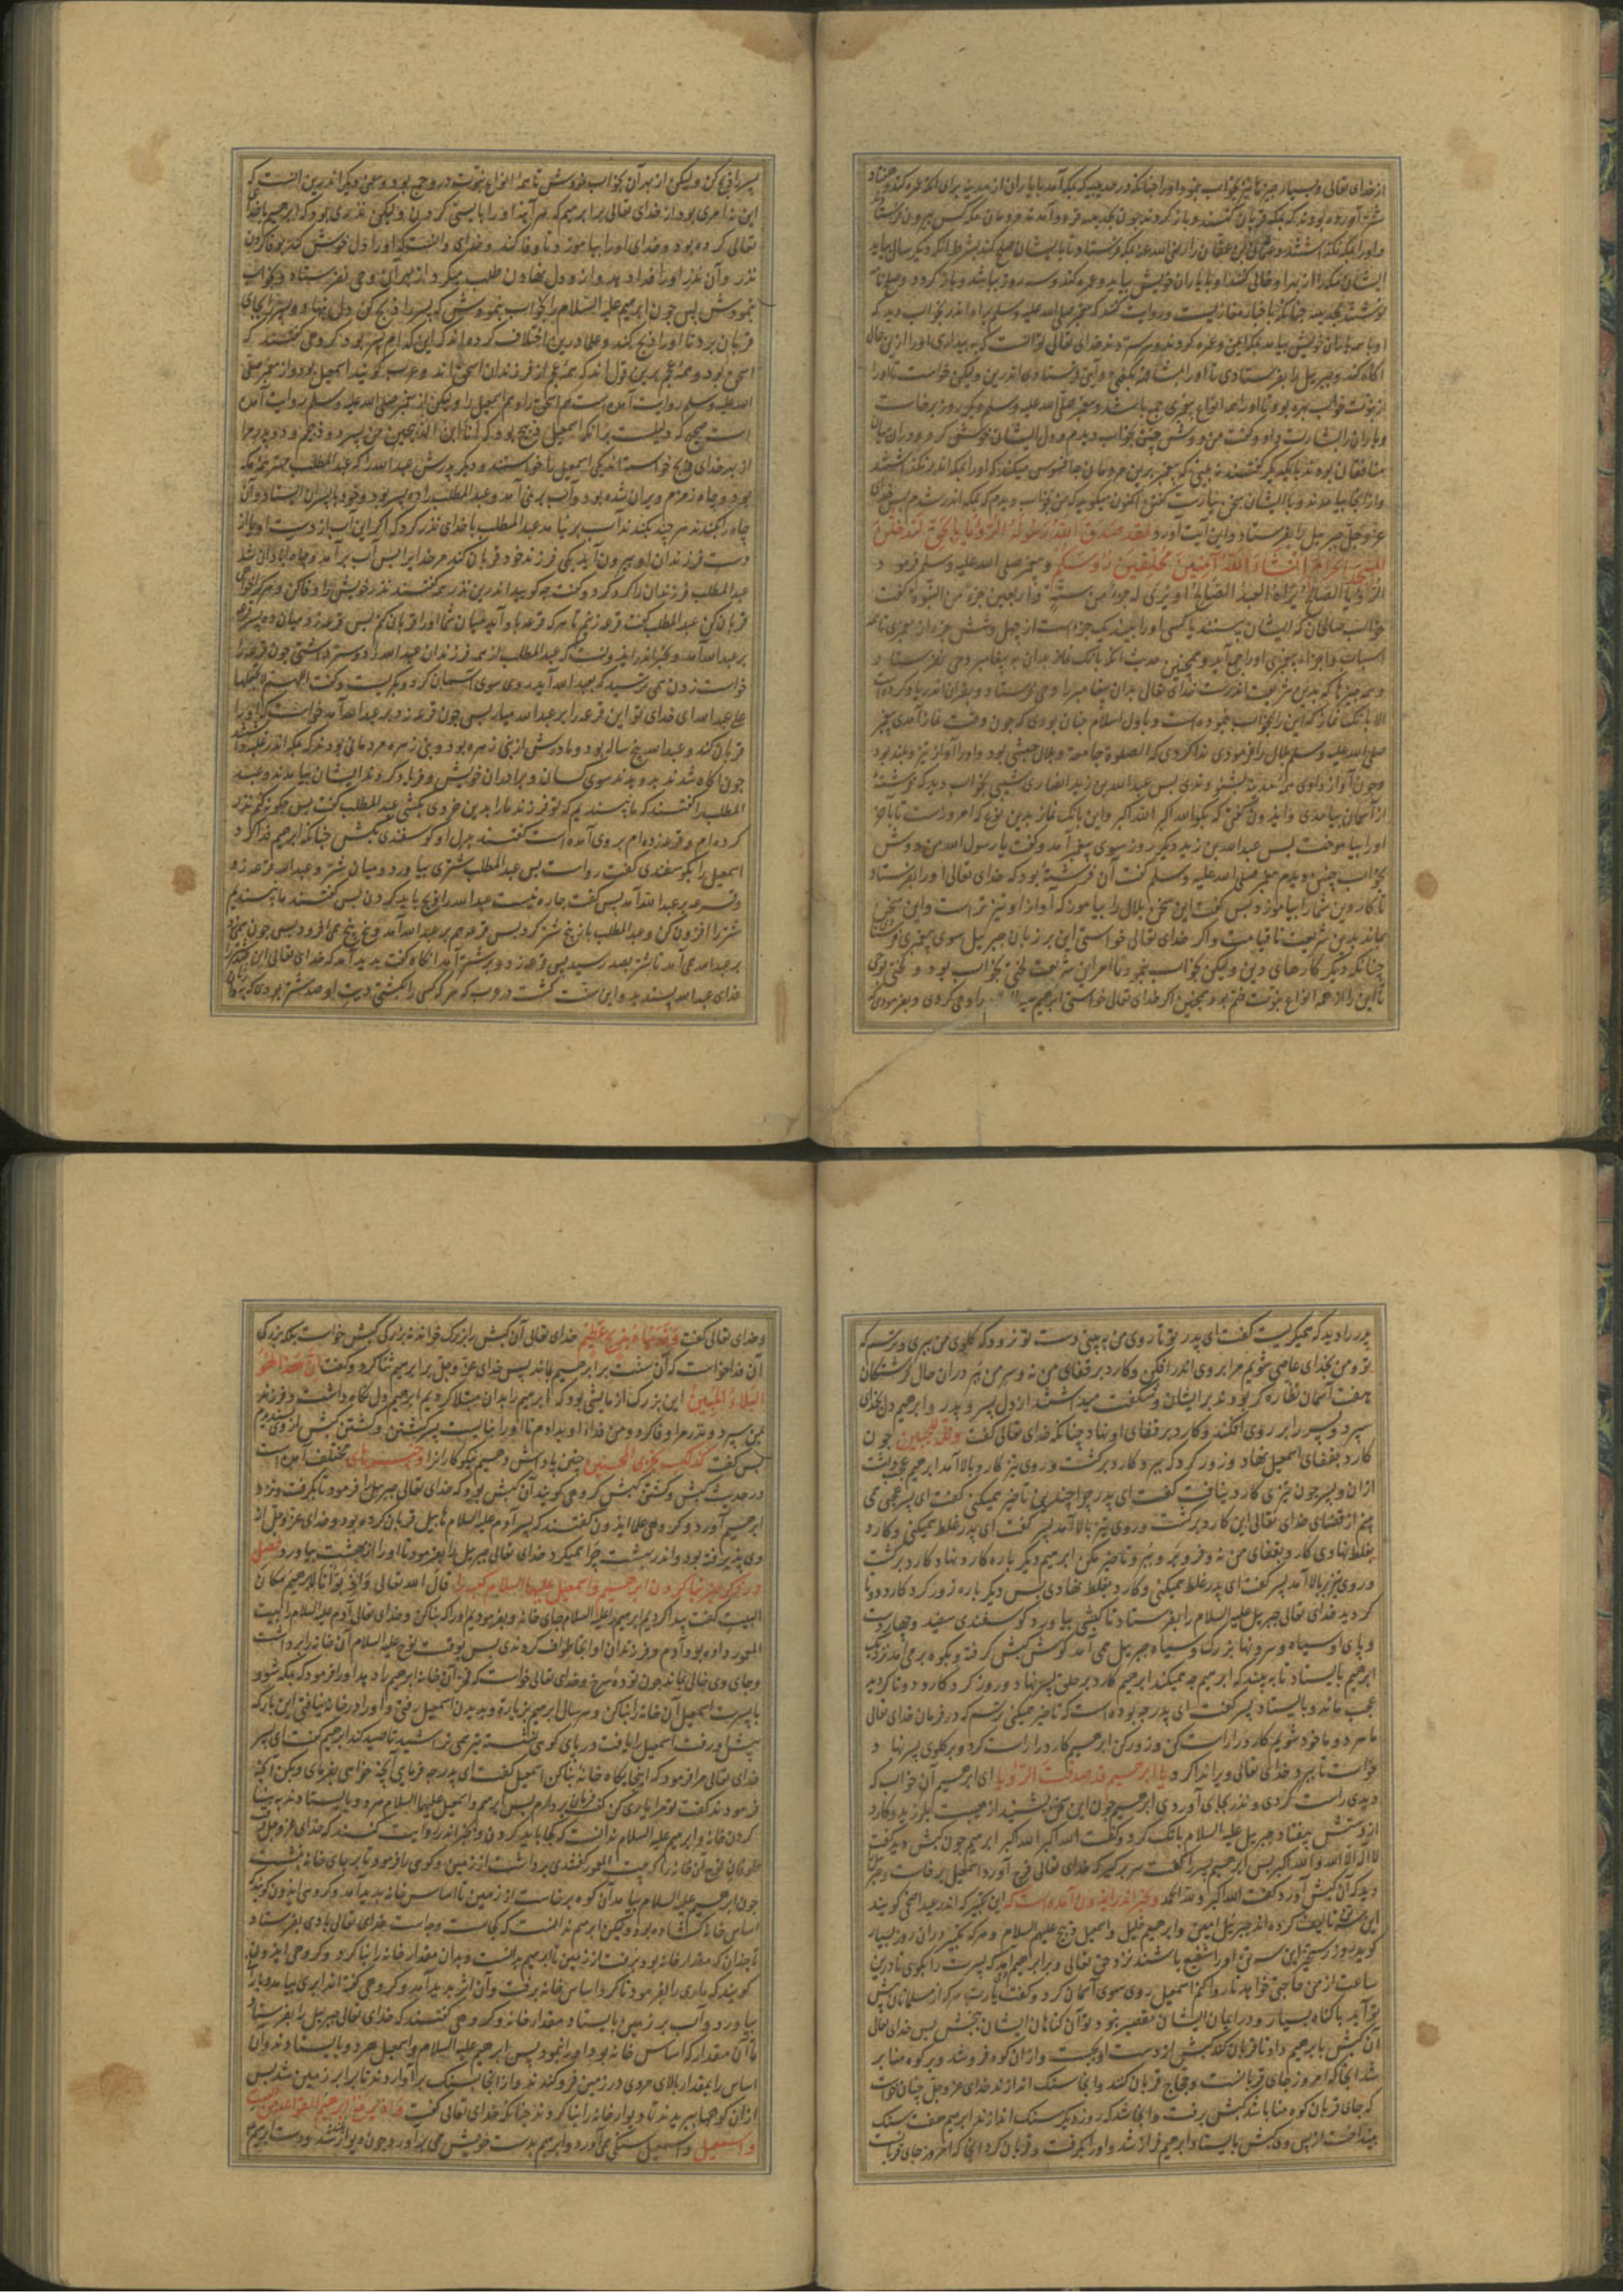 از خدای تعالی و بسیار چیزها نیز بخواب نمود او را چنانکه در حدیبیه که بمکه آمد با یاران از مدینه برای آنکه عمره کند و هفتاد
شتر آورده بودند که بمکه قربان کنند و باز گردند چون بحدیبیه فرود آمدند مردمان مکه کس بیرون فرستاد
و او را بمکه نگذاشتند و عثمان بن عفان را رضی الله عنه بمکه فرستاد تا با ایشان صلح کند بشرط آنکه دیگر سال بیاید
ایشان مکه را از بهر او خالی کنند او با یاران خویش بیاید و عمره کند و سه روز بباشد و باز گردد و صلح نامه
نوشتند بحدیبیه چنانکه باخبار مغازیست و روایت کنند که پیغمبر صلی الله علیه و سلم بر راه اندر بخواب دید که
او با همه یاران خویش بیامد بمکه ایمن و عمره کردند و سر ستردند خدای تعالی توانست که به بیداری او را ازین حال
آگاه کند و جبریل را بفرستادی تا او را بشافهه بگفتی و آیتی فرستادی اندرین ولیکن خواست تا او را
از نبوت خواب بهره بود و تا او را همه انواع پیغمبری جمع باشد و پیغمبر صلی الله علیه و سلم دیگر روز برخاست
و یاران را بشارت داد و گفت من دوش چنین بخواب دیدم و دل ایشان خوش کرد و در آن میان
منافقان بودند با یکدیگر گفتند نه بینی که پیغمبر برین مردمان چه افسوس میکند که او را بمکه اندر نگذاشتند
و از آنجا بیامدند و با ایشان سخن بنیارست گفتن و اکنون میگوید که من بخواب دیدم که بمکه اندر شدم پس خدای
عز و جل جبریل را بفرستاد و این آیت آورد لَقَد صَدَقَ اللهُ رَسُولَهُ الرُّؤیَا بِالحَقِّ لَتَدخُلُنَّ
المَسجِدَ الحَرامَ اِن شَاءَ اللهُ آمِنِینَ مُحَلِّقِینَ رُؤُسَکُم و پیغمبر صلی الله علیه و سلم فرمود
الرُّؤیَا الصَّالِحَةُ یَرَاهَا العَبدُ الصَّالِحُ اَو یُرَی لَهُ جُزءٌ مِن سِتَّةٍ وَاَربَعِینَ جُزءً مِنَ النُّبُوَّةِ گفت
خواب صالحان که ایشان بینند یا کسی او را بیند یک جزو است از چهل و شش جزو از پیغمبری تا همه
اسباب و اجزاء پیغمبری او را جمع آید و همچنین حدیث آنکه بانک نماز بدان به پیغامبر وحی نفرستاد
و همه چیزها که بدین شریعت اندرست خدای تعالی بدان پیغامبر را وحی فرستاد و بقرآن اندر یاد کرده است
الا بانک نماز که این را بخواب نموده است و باول اسلام چنان بودی که چون وقت نماز آمدی پیغمبر
صلی الله علیه و سلم بلال را فرمودی ندا کردی که الصلوة جامعة و بلال حبشی بود و او را آواز تیز و بلند بود
و چون آواز دادی همه مدینه بشنوندی پس عبدالله بن زید انصاری شبی بخواب دید که فرشتهٔ
از آسمان بیامدی و ایذون گفتی که بگو الله اکبر الله اکبر و این بانک نماز بدین نوع که امروزست تا بآخر
او را بیاموخت پس عبدالله بن زید دیگر روز سوی پیغمبر آمد و گفت یا رسول الله من دوش
بخواب چنین دیدم پیغمبر صلی الله علیه و سلم گفت آن فرشته بود که خدای تعالی او را بفرستاد
تا کار دین شما را بیاموزد پس گفت این سخن بلال را بیاموز که آواز او تیزتر است و این سخن
بماند بدین شریعت تا قیامت و اگر خدای تعالی خواستی این بر زبان جبریل سوی پیغمبر فرستادی
چنانکه دیگر کارهای دین ولیکن بخواب بنمود تا امر این شریعت لختی بخواب بود و لختی بوحی
تا این را از همه انواع نبوت ختم بود و همچنین اگر خدای تعالی خواستی ابرهیم را وحی کردی و بفرمودی که
پسر را ذبح کن ولیکن از بهر آن بخواب نمودش تا همه انواع نبوت در وی جمع بود و معنی دیگر اندرین آنست که
این نه امری بود از خدای تعالی بر ابرهیم که هر آینه او را بایستی کردن ولیکن نذری بود که ابرهیم با خدای
تعالی کرده بود و خدای او را بیاموزد تا وفا کند و خدای دانست که او را دل خوش کند بوفا کردن
نذر و آن نذر او را فدا دهد و از و دل نهادن طلب میکرد از بهر آن وحی نفرستاد و بخواب
نمودش پس چون ابرهیم علیه السلام را بخواب بنمودش که پسر را ذبح کن دل بنهاد و پسر را بجای
قربان برد تا او را ذبح کند و علما درین اختلاف کرده اند که این کدام پسر بود گروهی گفتند که
اسحق بود و همهٔ عجم برین قول اند که همهٔ عجم از فرزندان اسحق اند و عرب گویند اسمعیل بود و از پیغمبر صلی
الله علیه و سلم روایت آمده است هم اسحق را و هم اسمعیل را ولیکن از پیغمبر صلی الله علیه و سلم روایت آمده
است صحیح که دلیلست برانکه اسمعیل ذبیح بود که انا ابن الذبیحین من پسر دو ذبیحم و دو پدر مرا
از بهر خدای ذبح خواسته اند یکی اسمعیل را خواستند و دیگر پدرش عبدالله را که عبدالمطلب مهتر مکه
بود و چاه زمزم ویران شده بود و آب بر نمی آمد و عبدالمطلب را ده پسر بود و خود با پسران ایستاد و آن
چاه را بکندند هر چند بکندند آب بر نیامد عبدالمطلب با خدای نذر کرد که اگر این آب از دست او یا از
دست فرزندان او بیرون آید یکی فرزند خود قربان کند مر خدایرا پس آب بر آمد و چاه آبادان شد
عبدالمطلب فرزندان را گرد کرد و گفت چه گویید اندرین نذر همه گفتند نذر خویش را وفا کن و هر کرا خواهی
قربان کن عبدالمطلب گفت قرعه زنیم تا هر که قرعه با و آید میان شما او را قربان کنم پس قرعه زد میان ده پسر قرعه
بر عبدالله آمد و بخبر اندر ایدونست که عبدالمطلب از همه فرزندان عبدالله را دوستر داشتی چون قرعه را
خواست زدن همی ترسید که بعبدالله آید روی سوی آسمان کرد و بگریست و گفت اللهم لا تجعلها
علی عبدالله ای خدای تو این قرعه را بر عبدالله میار پس چون قرعه زد بر عبدالله آمد خواست که او را
قربان کند و عبدالله پنج ساله بود و مادرش از بنی زهره بود و بنی زهره مردمانی بودند که بمکه اندر غلبه داشتند
چون آگاه شدند بدویدند سوی کسان و برادران خویش و فریاد کردند ایشان بیامدند و عبد
المطلب را گفتند که ما نپسندیم که تو فرزند ما را بدین خردی بکشی عبدالمطلب گفت پس چگونه کنم نذر
کرده ام و قرعه زده ام بروی آمده است گفتند بدل او گوسفندی بکش چنانکه ابرهیم فدا کرد
اسمعیل را بگوسفندی گفت رواست پس عبدالمطلب شتری بیاورد و میان شتر و عبدالله قرعه زد
و قرعه بر عبدالله آمد پس گفت چاره نیست عبدالله را ذبح باید کردن پس گفتند ما نپسندیم
شتر را افزون کن و عبدالمطلب با پنج شتر کرد پس قرعه هم بر عبدالله آمد و پنج پنج همی افزود پس چون همی
بر عبدالله می آمد تا شتر بصد رسید پس قرعه زد و بر شتر آمد آنگاه گفت بدید آمد که خدای تعالی این صد شتر را
فدای عبدالله پسندید و این سنت گشت در عرب که هر که کسی را بکشتی دیت او صد شتر بودی که
پدر را دید که همیگریست گفت ای پدر تو تا روی من به بینی دست تو نرود که گلوی من ببری و ترسم که
تو و من بخدای عاصی شویم مرا بر روی اندر افکن و کارد بر قفای من نه و سر من ببر در آن حال فرشتگان
هفت آسمان نظاره کر بودند بر ایشان و شگفت میداشتند از دل پسر و پدر و ابرهیم دل بخدای
سپرد و پسر را بر روی افکند و کارد بر قفای او نهاد چنانکه خدای تعالی گفت وتله للجبین چون
کارد بقفای اسمعیل نهاد و زور کرد که ببرد کارد برگشت و روی تیز کارد بالا آمد ابرهیم عجب داشت
از آن و پسر چون تیزی کارد نیافت گفت ای پدر چرا چندین تأخیر همیکنی گفت ای پسر عجبی همی
بینم از قضای خدای تعالی این کارد برگشت و روی تیز بالا آمد پسر گفت ای پدر غلط همیکنی و کارد
بغلط نهادی کارد بقفای من نه و فرو بر و ببر و تاخیر مکن ابرهیم دیگر باره کارد بنهاد کارد برگشت
و روی تیز بر بالا آمد پسر گفت ای پدر غلط همیکنی و کارد بغلط نهادی پس دیگر باره زور کرد کارد دوتا
گردید خدای تعالی جبریل علیه السلام را بفرستاد تا کبشی بیاورد گوسفندی سفید و چهار دست
و پای او سیاه و سرونها بزرگ و سیاه جبریل همی آمد گوش کبش گرفته و بکوه بر همی آمد نزدیک
ابرهیم بایستاد تا به بیند که ابرهیم چه میکند ابرهیم کارد بر حلق پسر نهاد و زور کرد کارد دوتا گردید
عجب ماند و بایستاد پسر گفت ای پدر چه بوده است که تاخیر همیکنی ترسم که در فرمان خدای تعالی
ما هر دو ماخوذ شویم کارد را راست کن و زور کن ابرهیم کارد را راست کرد و بر گلوی پسر نهاد
خواست تا ببرد خدای تعالی ویرا ندا کرد یا ابرهیم قد صدقت الرؤیا ای ابرهیم آن خواب که
دیدی راست کردی و نذر بجای آوردی ابرهیم چون این سخن بشنید از هیبت بلرزید و کارد
از دستش بیفتاد جبریل علیه السلام بانک کرد و گفت الله اکبر الله اکبر ابرهیم چون کبش دید گفت
لا اله الا الله و الله اکبر پس ابرهیم پسر را گفت سر برگیر که خدای تعالی فرج آورد اسمعیل برخاست
دید که آن کبش آورد گفت الله اکبر و لله الحمد و بخبر اندر ایذون آمده است که این تکبیر که اندر عید اضحی گویند
این سه تن تالیف کرده اند جبریل امین و ابرهیم خلیل و اسمعیل ذبیح علیهم السلام و هر که تکبیر در آن روز بسیار
گوید روز رستخیز این سه تن او را شفیع باشند نزد حق تعالی
ساعت از من حاجتی خواهد تا روا کنم اسمعیل روی سوی آسمان کرد و گفت یا رب هر که از مسلمانان پیش
تو آید با گناه بسیار و در ایمان ایشان مقصر نبود تو آن گناهان ایشان ببخش پس خدای تعالی
آن کبش بابرهیم داد تا قربان کند کبش از دست او بجست و از آن کوه فرو شد و بر کوه منا بر
شد آنجا که امروز جای قربانست و حجاج قربان کنند و آنجا سنک اندازند خدای عز و جل چنان خواست
که جای قربان کوه منا باشد کبش برفت و آنجا شد که روز دیگر سنک اندازند ابرهیم هفت سنک
بینداخت از پس وی کبش بایستاد ابرهیم فراز شد و او را بگرفت و قربان کرد آنجا که امروز جای قربانست
و خدای تعالی گفت وَفَدَینَاهُ بِذِبحٍ عَظِیمٍ خدای تعالی آن کبش را بزرک خواند نه بزرگی کبش خواست بلکه بزرگی
آن فدا خواست که آن سنت بر ابرهیم بماند پس خدای عز و جل بر ابرهیم ثنا کرد و گفت اِنَّ هَذَا لَهُوَ
البَلاءُ المُبِینُ این بزرک آزمایشی بود که ابرهیم را بدان مبتلا کردیم ابرهیم دل نگاه داشت و فرزند
بمن سپرد و نذر مرا وفا کرد و من فدا او را دادم تا او را نبایست پسر کشتن و کشتن کبش از وی پسندیدم
پس گفت کذلک نجزی المحسنین چنین پاداش دهیم نیکوکارانرا و خبرهای مختلف آمده است
در حدیث کبش و کشتن کبش گروهی گویند آن کبش بود که خدای تعالی جبریل را فرمود تا بگرفت و نزد
ابرهیم آورد و گروهی علما ایذون گفتند که پسر آدم علیه السلام هابیل قربان کرده بود و خدای عز و جل از
وی پذیرفته بود و اندر بهشت چرا همیکرد خدای تعالی جبریل را بفرمود تا او را از بهشت بیاورد فصل
در ذکر خبر بنا کردن ابرهیم و اسمعیل علیهما السلام کعبه را قال الله تعالی وَاِذ بَوَّأنَا لاِبرهِیمَ مَکانَ
البیت گفت پیدا کردیم ابرهیم را علیه السلام جای خانه و بفرمودیم او را که بنا کن و خدای تعالی آدم علیه السلام را بیت
المعمور داده بود و آدم و فرزندان او آنجا طواف کردندی پس بوقت نوح علیه السلام آن خانه را برداشت
و جای وی خالی بماند چون تودهٔ سرخ و خدای تعالی خواست که ابرهیم را دید او را فرمود که بمکه شو و
با پسرت اسمعیل آن خانه را بنا کن و هر سال ابرهیم بزیارت و بدیدن اسمعیل رفتی و او را در خانه نیافتی این بار که
پیش او رفت اسمعیل را یافت در پای کوهی نشسته تیر همی تراشید تا صید کند ابرهیم گفت ای پسر
خدای تعالی مرا فرمود که اینجایگاه خانه بنا کن اسمعیل گفت ای پدر چه فرمایی آنچه خواهی بفرمای و بکن آنچه
فرمودند گفت تو مرا یاری کن گفت فرمان بردارم پس ابرهیم و اسمعیل علیهما السلام هر دو بایستادند به بنا
کردن خانه و ابرهیم علیه السلام ندانست که کجا باید کردن و بخبر اندر روایت کنند که خدای عز و جل بوقت
طوفان نوح آن خانه را که بیت المعمور گفتندی برداشت از زمین و کوهی را فرمود تا بر جای خانه نشست
چون ابرهیم علیه السلام بیامد آن کوه برخاست از زمین تا اساس خانه پدید آمد و گروهی ایذون گویند که
اساس خانه گشاده بود ولیکن ابرهیم ندانست که کجاست و چه است خدای تعالی بادی بفرستاد
تا چندان که مقدار خانه بود برفت از زمین تا ابرهیم بدانست و بدان مقدار خانه را بنا کرد و گروهی ایذون
گویند که ماری را بفرمود تا گرد اساس خانه برفت و آن اثر پدید آمد و گروهی گفته اند ابری بیامد و باران
بیاورد و آب بر زمین بایستاد مقدار خانه و گروهی گفتند که خدای تعالی جبریل را بفرستاد
تا آن مقدار که اساس خانه بود او را نمود پس ابرهیم علیه السلام و اسمعیل هر دو بایستادند و آن
اساس را بمقدار بالای مردی در زمین فرو کندند و از آنجا بسنک بر آوردند تا برابر زمین شد پس
از آن کوهها ببریدند تا دیوار خانه را بنا کردند چنانکه خدای تعالی گفت وَاِذ یَرفَعُ اِبرهِیمُ القَواعِدَ مِنَ البَیتِ
واسمعیل و اسمعیل سنگ همی آورد و ابرهیم بدست خویش همی بر آورد و چون دیوار بلند شد و دست ابرهیم